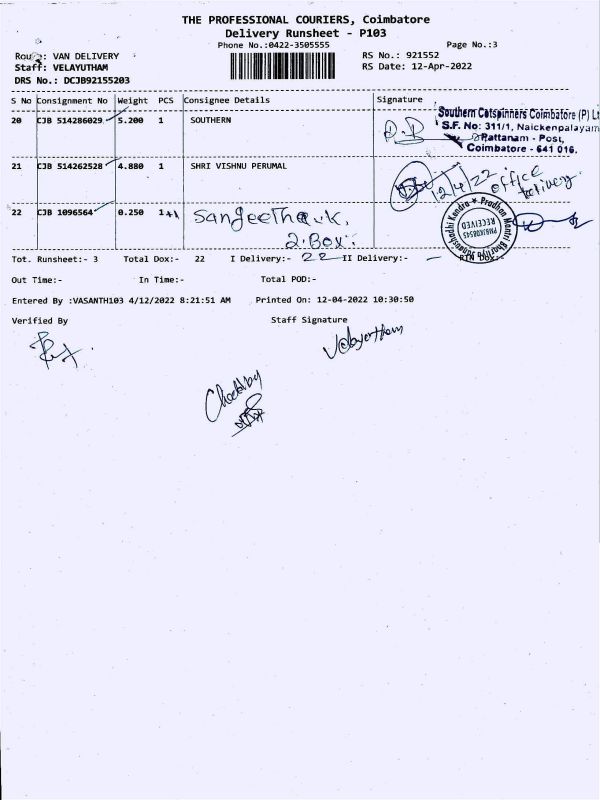 THE PROFESSIONAL COURIERS, Coimbatore
Delivery Runsheet - P103
Phone No.:0422-3505555 Page No.:3
Route: VAN DELIVERY RS No.: 921552
Staff: VELAYUTHAM RS Date: 12-Apr-2022
DRS No.: DCJB92155203
S No Consignment No Weight PCS Consignee Details Signature
20 CJB 514286029 5.200 1 SOUTHERN
Southern Catspinners Coimbatore (P) Lt
S.F. No: 311/1, Naickenpalayam
Pattanam - Post,
Coimbatore - 641 016.
21 CJB 514262528 4.880 1 SHRI VISHNU PERUMAL
12/4/22 office delivery
22 CJB 1096564 0.250 1+1 Sangeetha.K.
2.Box.
Pradhan Mantri Bhartiya Janaushadhi Kendra
RECEIVED
Tot. Runsheet:- 3 Total Dox:- 22 I Delivery:- 22 II Delivery:- - RTN Dox:-
Out Time:- In Time:- Total POD:-
Entered By :VASANTH103 4/12/2022 8:21:51 AM Printed On: 12-04-2022 10:30:50
Verified By Staff Signature
Velayutham